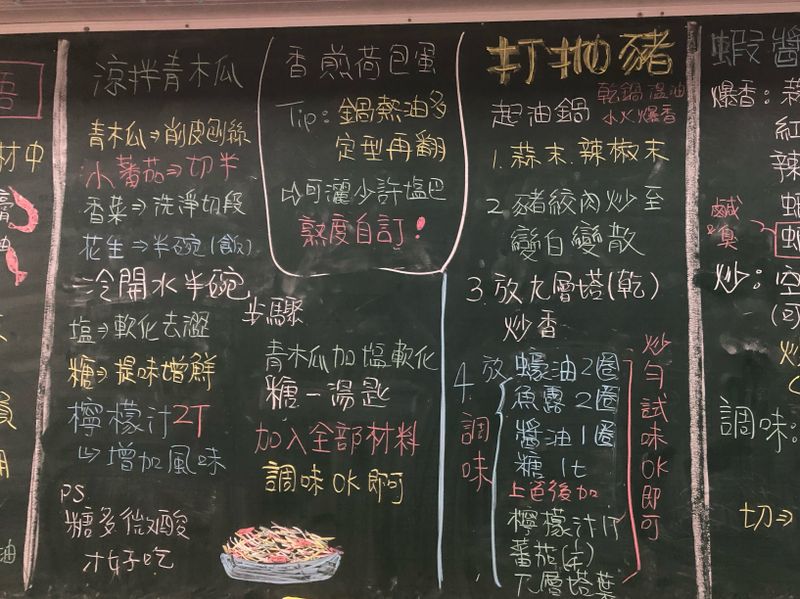 吾
材中
膏
油
涼拌青木瓜
青木瓜⇒削皮刨絲
小蕃茄⇒切半
香菜⇒洗淨切段
花生⇒半碗(飯)
冷開水半碗
塩⇒軟化去澀
糖⇒提味增鮮
檸檬汁2T
↳增加風味
PS.
糖多微酸
才好吃
香煎荷包蛋
Tip: 鍋熱油多
定型再翻
⇨可灑少許塩巴
熟度自訂!
步驟
青木瓜加塩軟化
糖一湯匙
加入全部材料
調味OK即可
打拋豬
起油鍋
乾鍋溫油
小火爆香
1. 蒜末.辣椒末
2. 豬絞肉炒至
變白變散
3. 放九層塔(乾)
炒香
4. 放調味
蠔油2圈
魚露2圈
醬油1圈
糖 1t
上色後加
檸檬汁1T
蕃茄(半)
九層塔葉
炒勻試味OK即可
蝦醬
爆香: 蒜
紅
辣
蝦
鹹
臭
炒: 空
(可
炒
調味:
切⇒